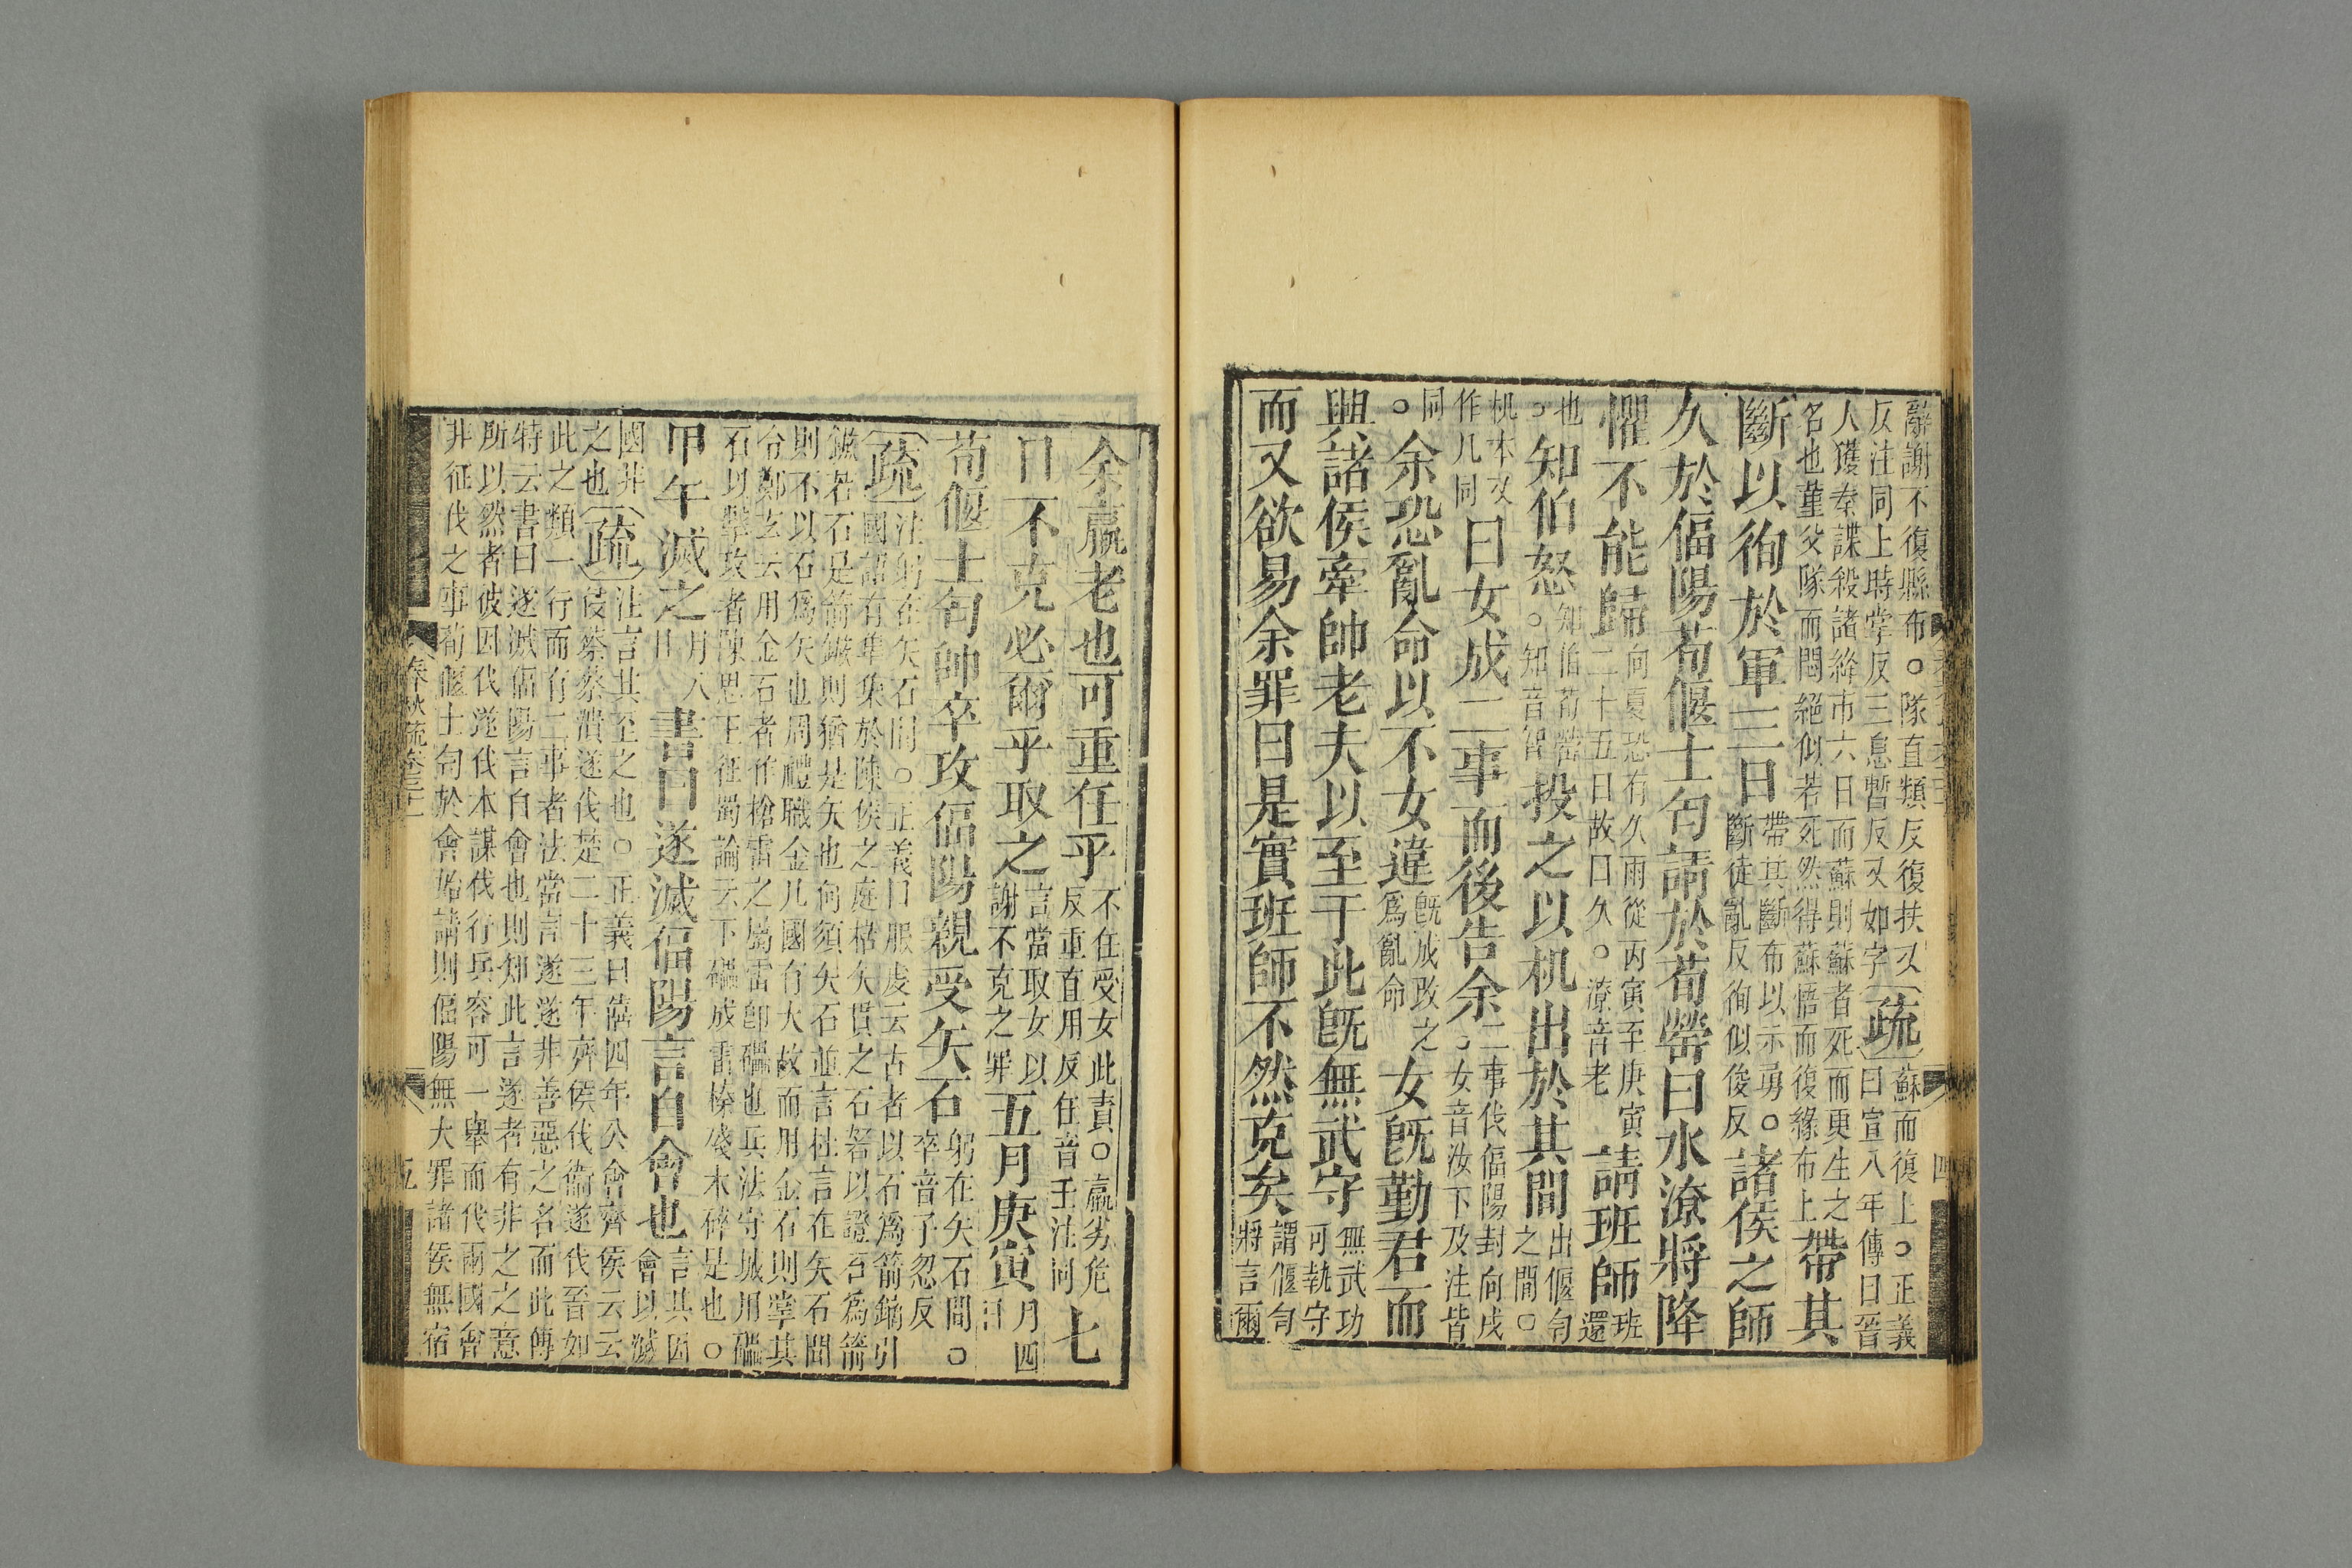 辭謝不復縣布○隊直類反復扶又
反注同上時掌反三息暫反又如字疏蘇而復上○正義
曰宣八年傳曰晉
人獲秦諜殺諸絳市六日而蘇則蘇者死而更生之
名也堇父隊而悶絕似若死然得蘇悟而復緣布上帶其
斷以徇於軍三日帶其斷布以示勇○
斷徒亂反徇似俊反諸侯之師
久於偪陽荀偃士匄請於荀罃曰水潦將降
懼不能歸向夏恐有久雨從丙寅至庚寅
二十五日故曰久○潦音老請班師班
還
也
○知伯怒知伯荀罃
○知音智投之以机出於其間出偃匄
之間○
机本又
作几同曰女成二事而後告余二事伐偪陽封向戌
○女音汝下及注皆
同
○余恐亂命以不女違旣成改之
爲亂命女旣勤君而
興諸侯牽帥老夫以至于此旣無武守無武功
可執守
而又欲易余罪曰是實班師不然克矣謂偃匄
將言爾
余羸老也可重任乎不任受女此責○羸劣危
反重直用反任音壬注同七
日不克必爾乎取之言當取女以
謝不克之罪五月庚寅月四
日
荀偃士匄帥卒攻偪陽親受矢石躬在矢石間○
卒音子忽反
疏注躬在矢石間○正義曰服虔云古者以石爲箭鏑引
國語有隼集於陳侯之庭楛矢貫之石砮以證石爲箭
鏃若石是箭鏃則猶是矢也何須矢石並言杜言在矢石間
則不以石爲矢也周禮職金凡國有大故而用金石則掌其
令鄭玄云用金石者作槍雷之屬雷卽礧也兵法守城用礧
石以擊攻者陳思王征蜀論云下礧成雷榛殘木碎是也○
甲午滅之月八
日書曰遂滅偪陽言自會也言其因
會以滅
國非
之也疏注言其至之也○正義曰僖四年公會齊侯云云
侵蔡蔡潰遂伐楚二十三年齊侯伐衞遂伐晉如
此之類一行而有二事者法當言遂遂非善惡之名而此傳
特云書曰遂滅偪陽言自會也則知此言遂者有非之之意
所以然者彼因伐遂伐本謀伐行兵容可一舉而伐兩國會
非征伐之事荀偃士匄於會始請則偪陽無大罪諸侯無宿
春秋疏卷三十一
五
四